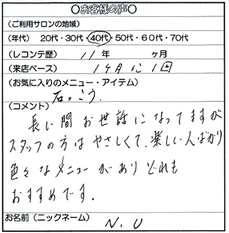 ○お客様の声○
(ご利用サロンの地域)
(年代) 20代・30代・40代・50代・60代・70代
(レコンテ歴) 11年 ヶ月
(来店ペース) 1ヶ月に1回
(お気に入りのメニュー・アイテム)
石こう
(コメント)
長い間お世話になってますが
スタッフの方はやさしくて、楽しい人ばかり
色々なメニューがありどれも
おすすめです。
お名前(ニックネーム) N.U